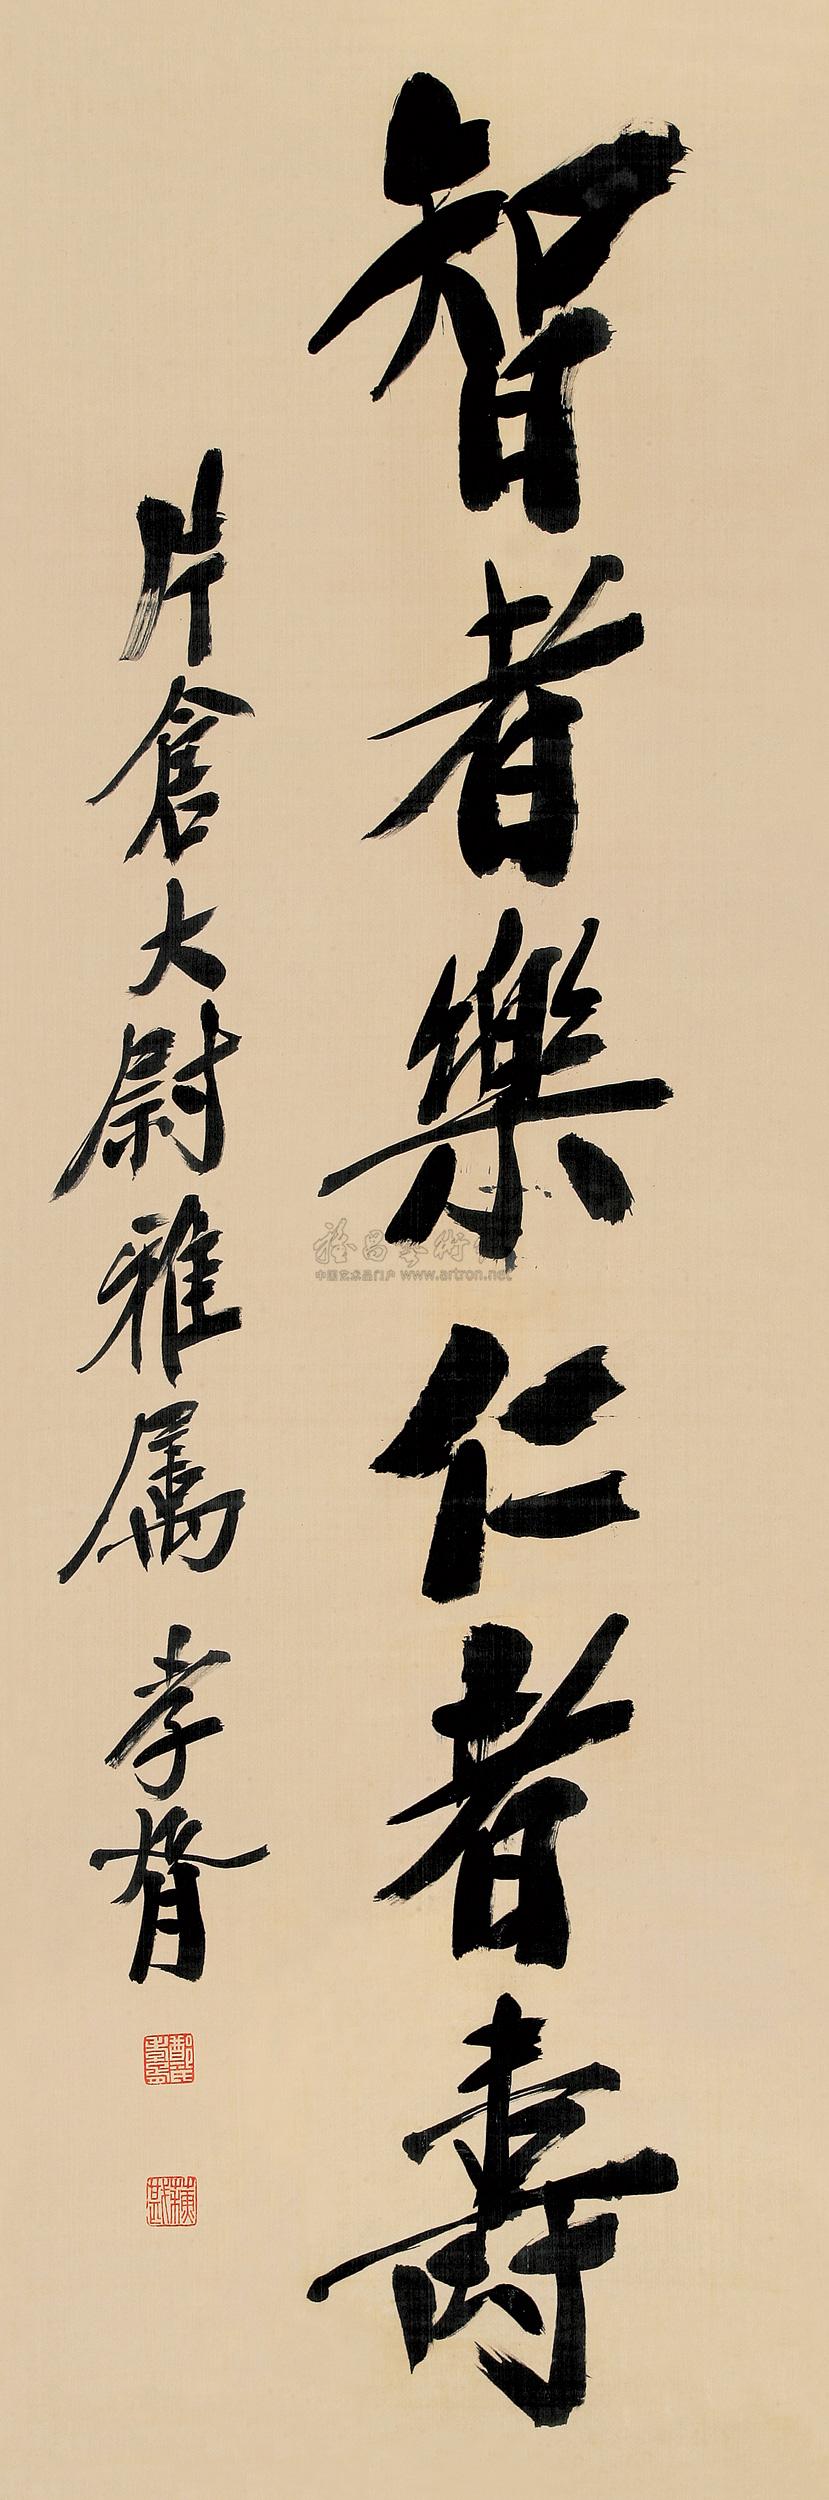 智者樂仁者壽
片倉大尉雅属 孝胥
雅昌艺术
中国艺术品门户 www.artron.net